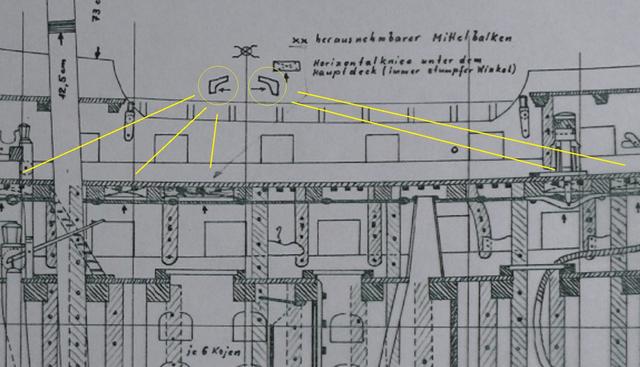 73 c
12,5cm
xx herausnehmbarer Mittelbalken
Horizontalkniee unter dem
Hauptdeck (immer stumpfer Winkel)
je 6 Kojen